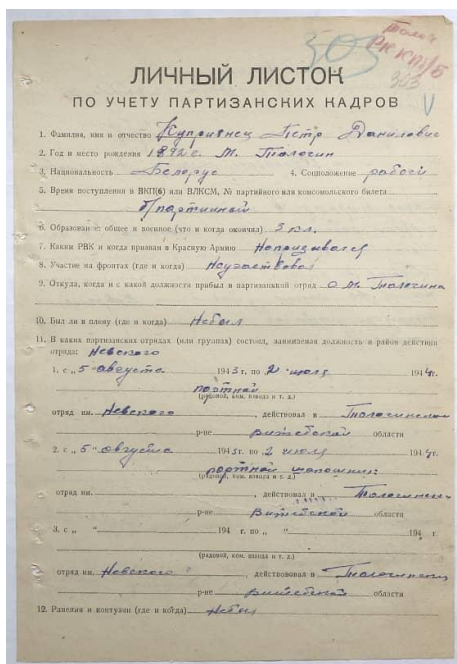 503
Толоч
РК КП/б
303
V
ЛИЧНЫЙ ЛИСТОК
ПО УЧЕТУ ПАРТИЗАНСКИХ КАДРОВ
1. Фамилия, имя и отчество Куприянец Петр Данилович
2. Год и место рождения 1892 г. м. Толочин
3. Национальность Белорус 4. Соцположение рабочи
5. Время поступления в ВКП(б) или ВЛКСМ, № партийного или комсомольского билета
б/партийный
6. Образование: общее и военное (что и когда окончил) 3 кл.
7. Каким РВК и когда призван в Красную Армию Непризывался
8. Участие на фронтах (где и когда) Неучаствовал
9. Откуда, когда и с какой должности прибыл в партизанский отряд с м. Толочина
10. Был ли в плену (где и когда) Небыл
11. В каких партизанских отрядах (или группах) состоял, занимаемая должность и район действия
отряда: Невского
1. с „5" августа 1943 г. по „2" июля 1944 г.
портной
(рядовой, ком. взвода и т. д.)
отряд им. Невского, действовал в Толочинском
р-не витебской области
2. с „5" августа 1943 г. по „2 июля 1944 г.
портной шапошник
(рядовой, ком. взвода и т. д.)
отряд им. , действовал в Толочински
р-не Витебской области
3. с „ " 194 г. по „ " 194 г.
(рядовой, ком. взвода и т. д.)
отряд им. Невского, действовал в Толочински
р-не витебской области
12. Ранения и контузии (где и когда) небыл